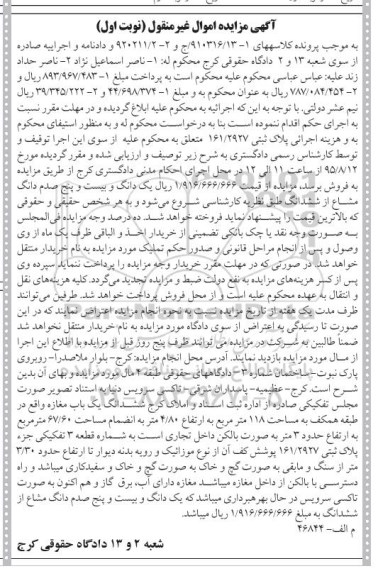 آگهی مزایده اموال غیرمنقول (نوبت اول)
به موجب پرونده کلاسه‌های ۱- ۹۱۰۳۱۶/۱۳/ج و ۲- ۹۲۰۲۱۱/۲ و دادنامه و اجراییه صادره
از سوی شعبه ۱۳ و ۲ دادگاه حقوقی کرج محکوم له: ۱- ناصر اسماعیل نژاد ۲- ناصر حداد
زند علیه: عباس عباسی محکوم علیه محکوم است به پرداخت مبلغ ۱- ۸۹۳/۹۶۷/۴۸۳ ریال و
۲- ۷۸۷/۰۸۴/۴۵۴ ریال به عنوان محکوم به و مبلغ ۱- ۴۴/۶۹۸/۳۷۴ و ۲- ۳۹/۳۴۵/۲۲۲ ریال و
نیم عشر دولتی. با توجه به این که اجرائیه به محکوم علیه ابلاغ گردیده و در مهلت مقرر نسبت
به اجرای حکم اقدام ننموده است بنا به درخواست محکوم له و به منظور استیفای محکوم
به و هزینه اجرائی پلاک ثبتی ۱۶۱/۲۹۲۷ متعلق به محکوم علیه از سوی این اجرا توقیف و
توسط کارشناس رسمی دادگستری به شرح زیر توصیف و ارزیابی شده و مقرر گردیده مورخ
۹۵/۸/۱۲ از ساعت ۱۱ الی ۱۲ در محل اجرای احکام مدنی دادگستری کرج از طریق مزایده
به فروش برسد. مزایده از قیمت ۱/۹۱۶/۶۶۶/۶۶۶ ریال یک دانگ و بیست و پنج صدم دانگ
مشاع از ششدانگ طبق نظریه کارشناسی شروع می‌شود و به هر شخص حقیقی و حقوقی
که بالاترین قیمت را پیشنهاد نماید فروخته خواهد شد. ده درصد وجه مزایده فی‌المجلس
به صورت وجه نقد یا چک بانکی تضمینی از خریدار اخذ و الباقی ظرف یک ماه از وی
وصول و پس از انجام مراحل قانونی و صدور حکم تملیک مورد مزایده به نام خریدار منتقل
خواهد شد. در صورتی که در مهلت مقرر خریدار وجه مزایده را پرداخت ننماید سپرده وی
پس از کسر هزینه‌های مزایده به نفع دولت ضبط و مزایده تجدید می‌گردد. کلیه هزینه‌های نقل
و انتقال به عهده محکوم علیه است و از محل فروش پرداخت خواهد شد. طرفین می‌توانند
ظرف مدت یک هفته از تاریخ مزایده نسبت به نحوه انجام مزایده اعتراض نمایند که در این
صورت تا رسیدگی به اعتراض از سوی دادگاه مورد مزایده به نام خریدار منتقل نخواهد شد
ضمناً طالبین به شرکت در مزایده می‌توانند ظرف پنج روز قبل از مزایده با اطلاع این اجرا
از مال مورد مزایده بازدید نمایند. آدرس محل انجام مزایده: کرج- بلوار ملاصدرا- روبروی
پارک نبوت- ساختمان شماره ۳- دادگاههای حقوقی طبقه ۴ مال مورد مزایده و بهای آن بدین
شرح است. کرج- عظیمیه- پاسداران شرقی- تاکسی سرویس دنیا به استناد تصویر صورت
مجلس تفکیکی صادره از اداره ثبت اسناد و املاک کرج ششدانگ یک باب مغازه واقع در
طبقه همکف به مساحت ۱۱۸ متر مربع به ارتفاع ۴/۸۰ متر به انضمام مساحت ۶۷/۶۰ مترمربع
به ارتفاع حدود ۳ متر به صورت بالکن داخل تجاری است به شماره قطعه ۳ تفکیکی جزء
پلاک ثبتی ۱۶۱/۲۹۲۷ پوشش کف آن از نوع موزائیک و رویه بدنه دیوار تا ارتفاع حدود ۳/۳۰
متر از سنگ و مابقی به صورت گچ و خاک به صورت گچ و خاک و سفیدکاری میباشد و راه
دسترسی با بالکن از داخل مغازه میباشد مغازه دارای آب، برق گاز و هم اکنون به صورت
تاکسی سرویس در حال بهره‌برداری میباشد که یک دانگ و بیست و پنج صدم دانگ مشاع از
ششدانگ به مبلغ ۱/۹۱۶/۶۶۶/۶۶۶ ریال میباشد.
م الف- ۴۶۸۴۴
شعبه ۲ و ۱۳ دادگاه حقوقی کرج